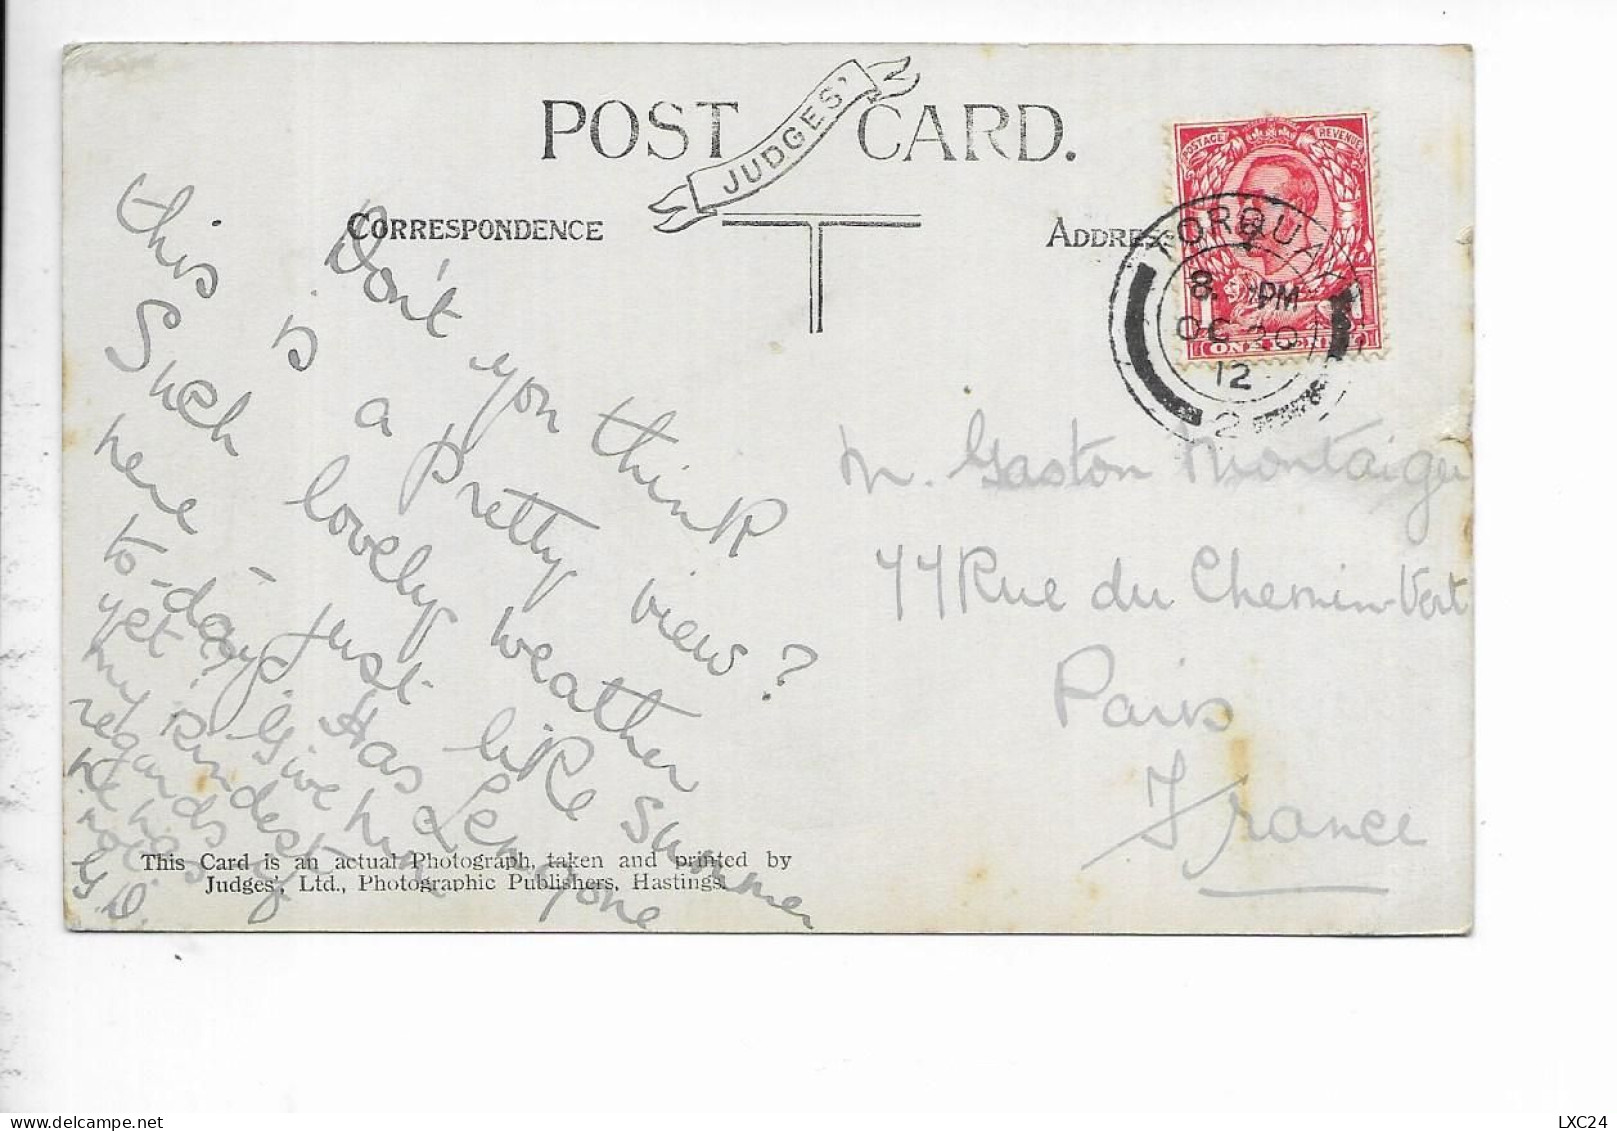 POST CARD.
JUDGES'
CORRESPONDENCE
ADDRESS
POSTAGE REVENUE
ONE PENNY
TORQUAY
8 PM
OC 20
12
2
Don't you think
this is a pretty view?
Such lovely weather
here - just like summer
to-day! Has
yet? Give him
my kindest
regards if
he has
not.
G.D.
M. Gaston Montaigu
77 Rue du Chemin-Vert
Paris
France
This Card is an actual Photograph, taken and printed by
Judges', Ltd., Photographic Publishers, Hastings.
LXC24